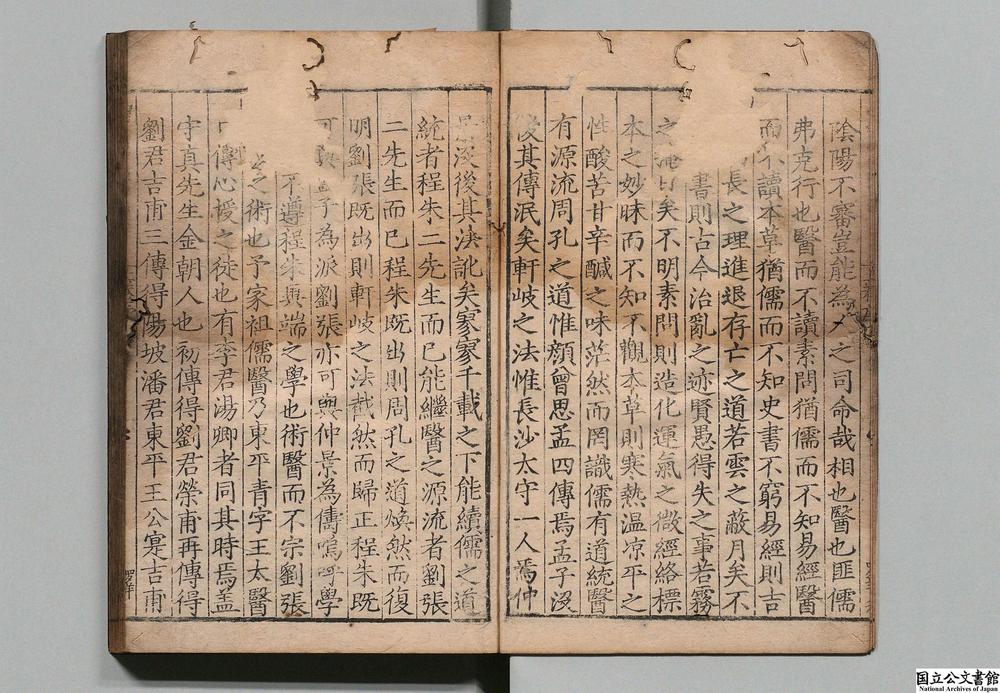 陰陽不審豈能為人之司命哉相也醫也匪儒
弗克行也醫而不讀素問猶儒而不知易經醫
而不讀本草猶儒而不知史書不窮易經則吉
長之理進退存亡之道若雲之蔽月矣不
書則古今治亂之迹賢愚得失之事若霧
之 矣不明素問則造化運氣之微經絡標
本之妙昧而不知不觀本草則寒熱温凉平之
性酸苦甘辛鹹之味茫然而罔識儒有道統醫
有源流周孔之道惟顏曾思孟四傳焉孟子没
後其傳泯矣軒岐之法惟長沙太守一人焉仲
景没後其決訛矣寥寥千載之下能續儒之道
統者程朱二先生而已能繼醫之源流者劉張
二先生而已程朱既出則周孔之道煥然而復
明劉張既出則軒岐之法截然而歸正程朱既
可與 子為派劉張亦可與仲景為儔嗚呼學
不遵程朱異端之學也術醫而不宗劉張
之術也予家祖儒醫乃東平青字王太醫
傳心授之徒也有李君湯卿者同其時焉盖
守真先生金朝人也初傳得劉君榮甫再傳得
劉君吉甫三傳得陽坡潘君東平王公寔吉甫
国立公文書館
National Archives of Japan